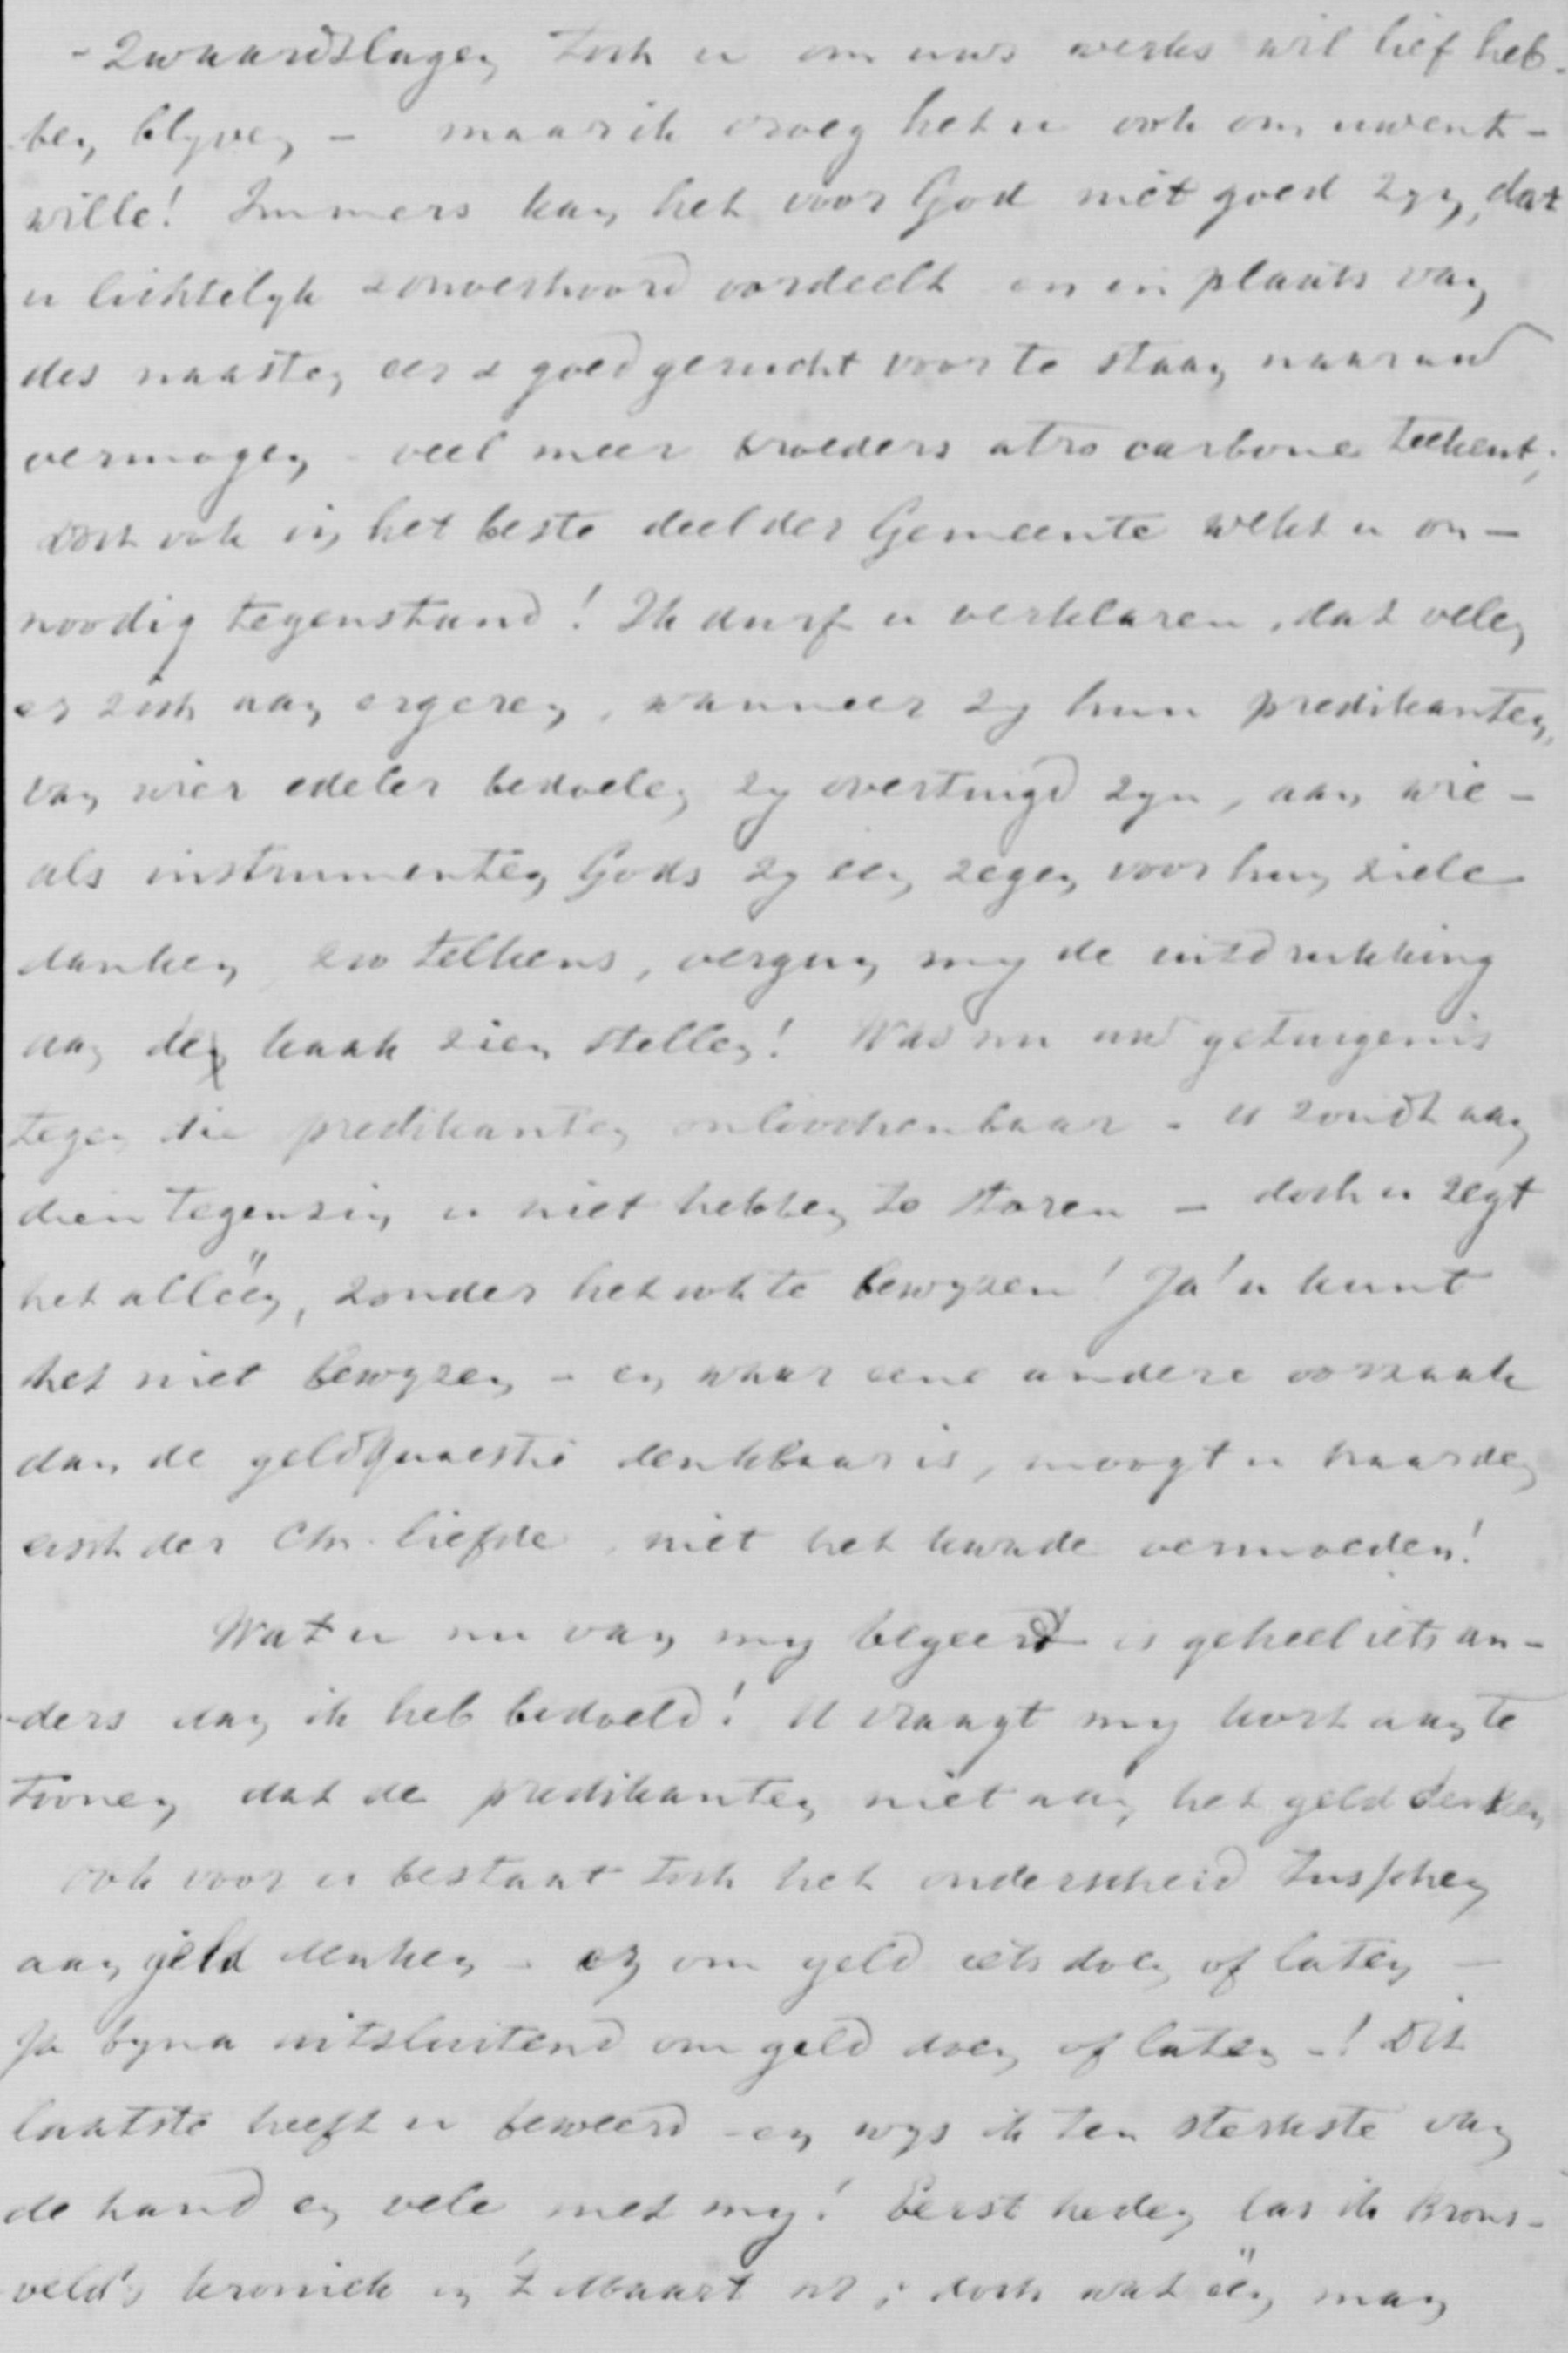 - zwaardslagen toch u om uws werks wil lief heb-
ben blyven - maar ik vroeg het u ook om uwent-
wille! Immers kan het voor God niet goed zyn, dat
u lichtelyk & onverhoord oordeelt en in plaats van
des naasten eer & goed gerucht voor te staan naar uw
vermogen - veel meer broeders atro carbone teekent;
doch ook in het beste deel der Gemeente wekt u on-
noodig tegenstand! Ik durf u verklaren, dat velen
er zich aan ergeren, wanneer zy hun predikanten,
van wier edeler bedoelen zy overtuigd zyn, aan wie -
als instrumenten Gods zy een zegen voor hun ziele
danken zoo telkens, vergun my de uitdrukking
aan de kaak zien stellen! Was nu uw getuigenis
tegen die predikanten onloochenbaar - u zoudt aan
dien tegenzin u niet hebben te storen - doch u zegt
het alléén, zonder het ook te bewyzen! Ja! u kunt
het niet bewyzen - en waar eene andere oorzaak
dan de geldquaestie denkbaar is, moogt u naar den
eisch der Chr. liefde niet het kwade vermoeden!
Wat u nu van my begeert is geheel iets an-
-ders dan ik heb bedoeld! U vraagt my kort aan te
toonen dat de predikanten niet aan het geld denken
ook voor u bestaat toch het onderscheid tusschen
aan geld denken - en om geld iets doen of laten -
ja byna uitsluitend om geld doen of laten -! Dit
laatste heeft u beweerd - en wys ik ten sterkste van
de hand en vele met my! Eerst heden las ik Brons-
veld's kroniek in 't Maart nr; doch wat één man